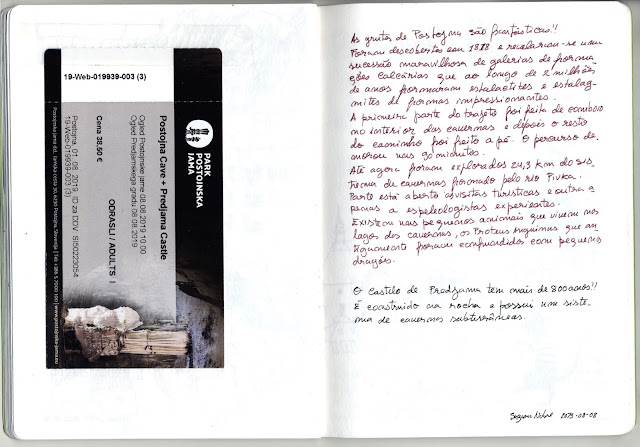 19-Web-019939-003 (3)
PARK
POSTOJNSKA
JAMA
Postojna Cave + Predjama Castle
Ogled Postojnske jame 08.08.2019 10:00
Ogled Predjamskega gradu 08.08.2019
ODRASLI / ADULTS I
Cena 38,50 €
Postojna, 01. 08. 2019, ID za DDV: SI50223054
19-Web-019939-003 (3)
Postojnska jama d.d., Jamska cesta 30, 6230 Postojna, Slovenija | Tel: +386 5 7000 100 | www.postojnska-jama.eu
As grutas de Postojna são fantásticas!!
Foram descobertas em 1818 e revelaram-se uma
sucessão maravilhosa de galerias de forma
ções calcárias que ao longo de 2 milhões
de anos formaram estalactites e estalag-
mites de formas impressionantes.
A primeira parte do trajeto foi feita de comboio
no interior das cavernas e depois o resto
do caminho foi feito a pé. O percurso de
morou uns 90 minutos.
Até agora foram explorados 24,3 km do sis
tema de cavernas formado pelo rio Pivka.
Parte está aberto a visitas turísticas e outra a
penas a espeleologistas experientes.
Existem uns pequenos animais que vivem nos
lagos das cavernas, os Proteus anguinus que an
tigamente foram confundidos com pequenos
dragões.
O Castelo de Predjama tem mais de 800 anos!!
É construido na rocha e possui um siste-
ma de cavernas subterrâneas.
2019-08-08